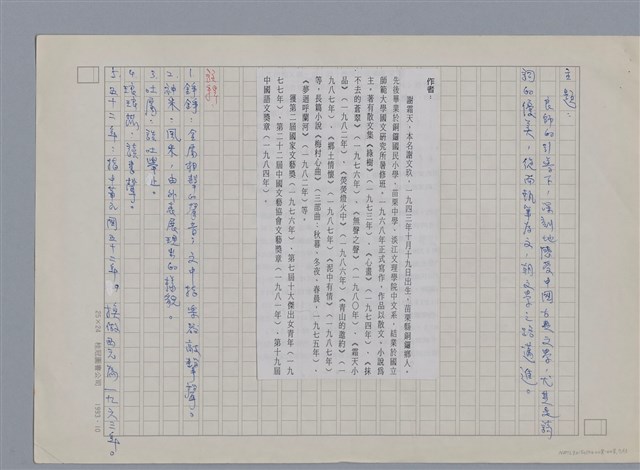 主題：
良師的引導下，深刻地感受中國古典文學，尤其是詩
詞的優美，從而執筆屬文，朝文學之路邁進。
作者：
謝霜天，本名謝文玖，一九四三年十月十九日出生，苗栗縣銅鑼鄉人。
先後畢業於銅鑼國民小學、苗栗中學、淡江文理學院中文系，結業於國立
師範大學國文研究所暑修班，一九六八年正式寫作，作品以散文、小說為
主，著有散文集《綠樹》（一九七三年）、《心畫》（一九七四年）、《抹
不去的蒼翠》（一九七六年）、《無聲之聲》（一九八〇年）、《霜天小
品》（一九八二年）、《熒熒燈火中》（一九八六年）《青山的邀約》（一
九八七年）、《鄉土情懷》（一九八七年）《泥中有情》（一九八七年）
等，長篇小說《梅村心曲》（三部曲：秋暮、冬夜、春晨，一九七五年）、
《夢迴呼蘭河》（一九八二年）等，
獲第二屆國家文藝獎（一九七六年）、第七屆十大傑出女青年（一九
七七年）、第二十二屆中國文藝協會文藝獎章（一九八一年）、第十九屆
中國語文獎章（一九八四年）。
註釋
1、錚錚：金屬相擊的聲音，文中指樂器敲擊聲。
2、神采：風采，由外表展現出的樣貌。
3、吐屬：談吐舉止。
4、琅琅然：讀書聲。
5、五十二年：指中華民國五十二年。換做西元為一九六三年。
25×24 1993.10